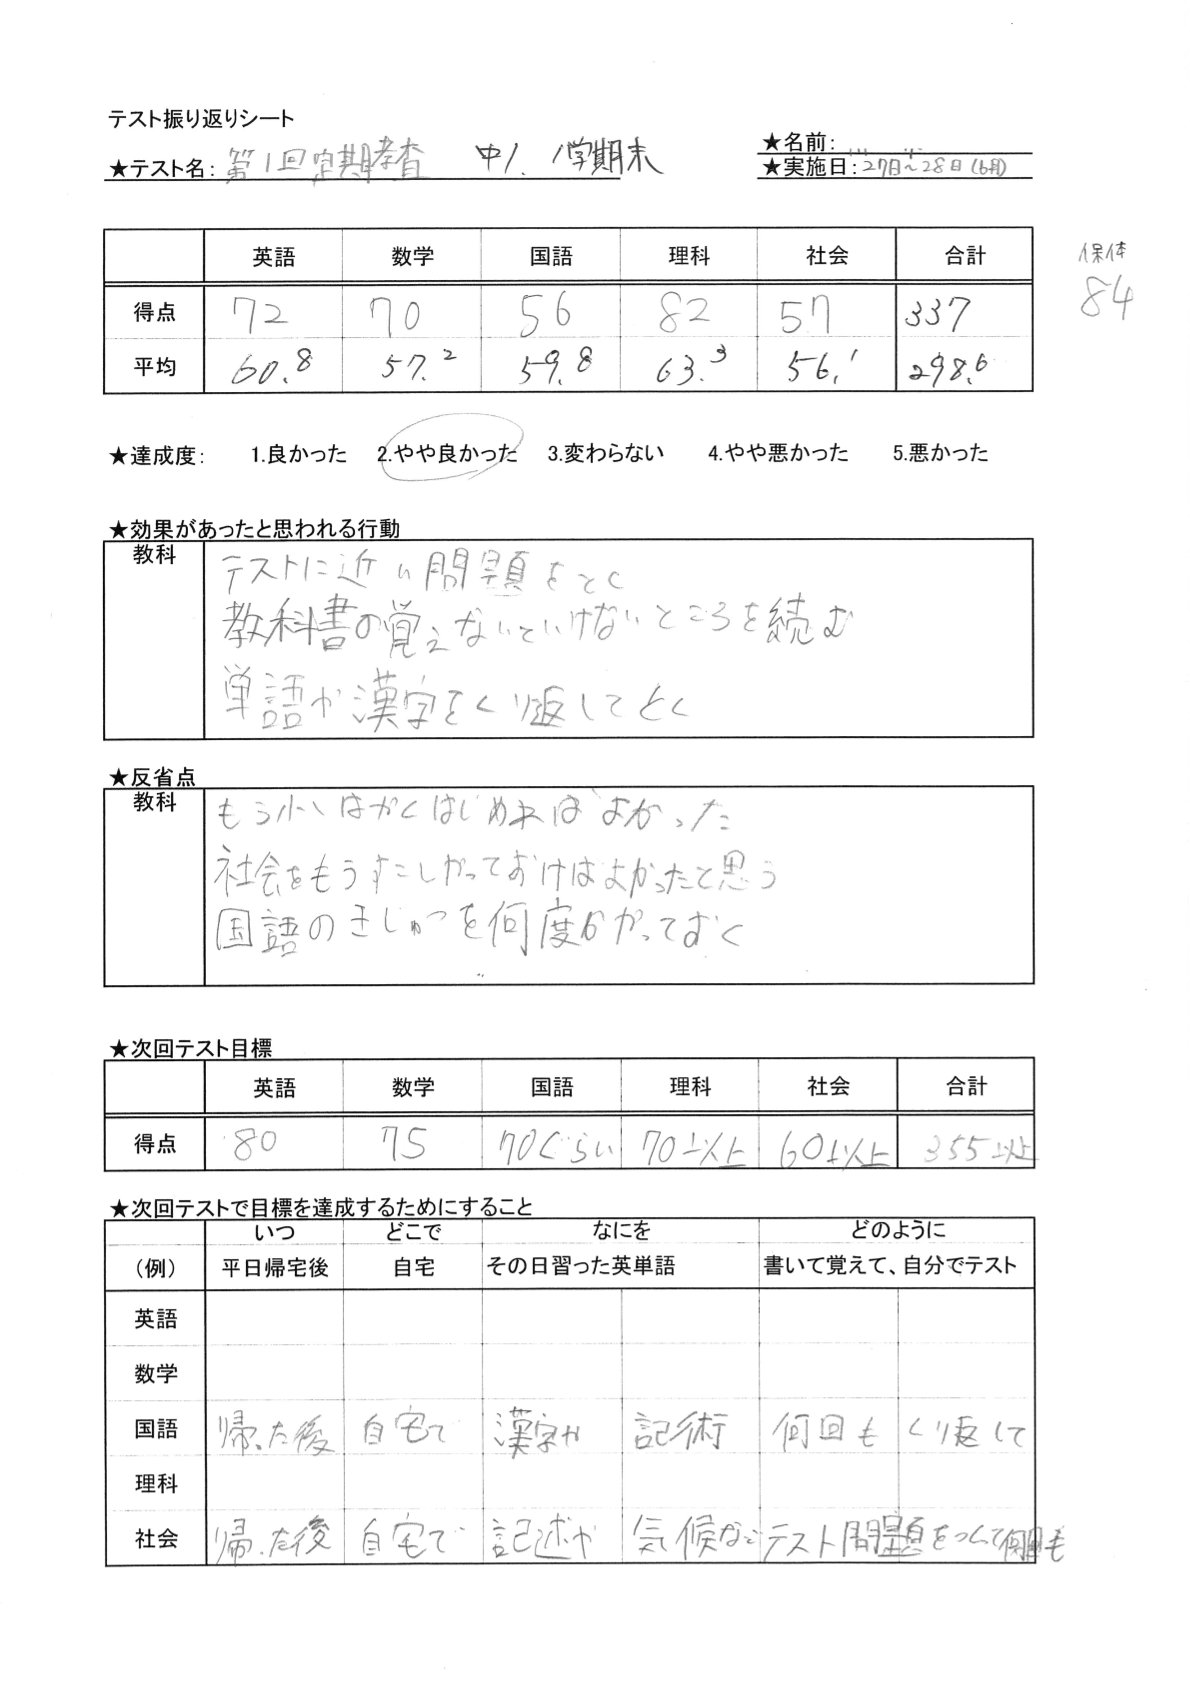 テスト振り返りシート
★テスト名: 第1回定期考査 中1. 1学期末
★名前:
★実施日: 27日~28日(6月)
英語 数学 国語 理科 社会 合計
保体
84
得点 72 70 56 82 57 337
平均 60.8 57.2 59.8 63.3 56.1 298.6
★達成度: 1.良かった 2.やや良かった 3.変わらない 4.やや悪かった 5.悪かった
★効果があったと思われる行動
教科
テストに近い問題をとく
教科書の覚えないといけないところを続む
単語や漢字をくり返してとく
★反省点
教科
もう少しはやくはじめればよかった
社会をもうすこしやっておけばよかったと思う
国語のきじゅつを何度もやっておく
★次回テスト目標
英語 数学 国語 理科 社会 合計
得点 80 75 70ぐらい 70以上 60以上 355以上
★次回テストで目標を達成するためにすること
いつ どこで なにを どのように
(例) 平日帰宅後 自宅 その日習った英単語 書いて覚えて、自分でテスト
英語
数学
国語 帰った後 自宅で 漢字や 記術 何回も くり返して
理科
社会 帰った後 自宅で 記述や 気候など テスト問題をつくって何回も